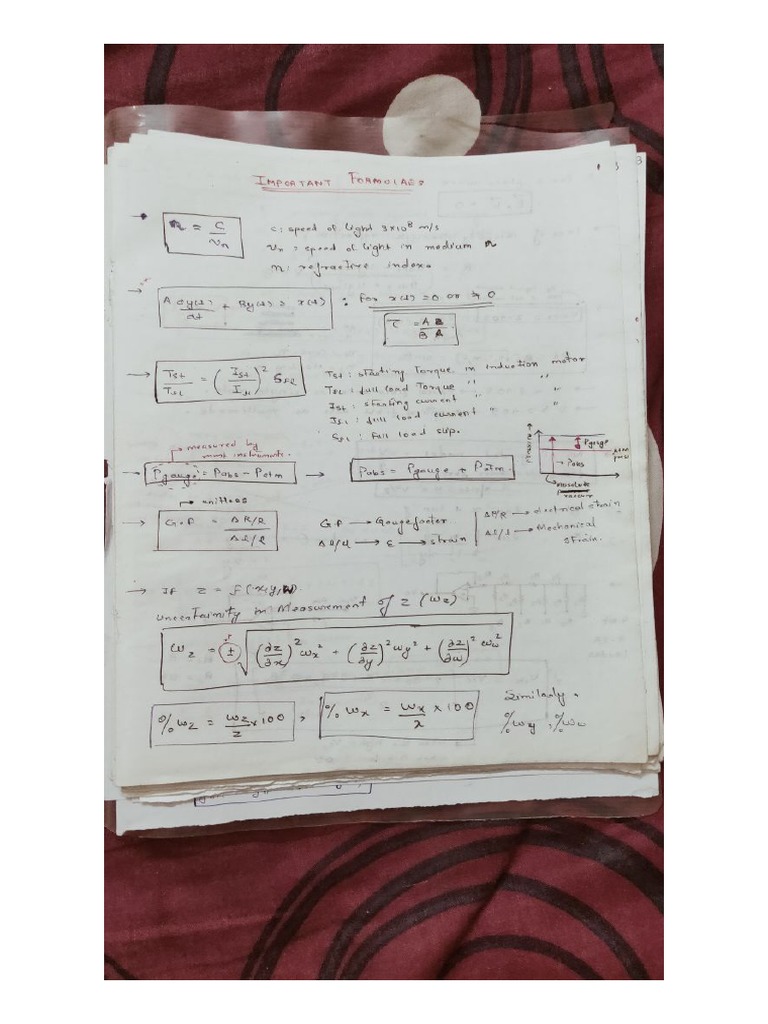 IMPORTANT FORMULAES
n = c/vn
c: speed of light 3×10⁸ m/s
vn = speed of light in medium n
n: refractive index.
→ A dy(t)/dt + By(t) = x(t) : For x(t) = 0 or ≠ 0
τ = A/B
→ Tst/Tfl = (Ist/Ifl)² Sfl
Tst: starting Torque in induction motor
Tfl: full load Torque " "
Ist: starting current " "
Ifl: full load current " "
Sfl: full load slip.
→ measured by
most instruments.
→ Pgauge = Pabs - Patm → Pabs = Pgauge + Patm.
Pressure →
Pgauge
Pabs
atm
absolute
vacuum
→ unitless
→ G.F = ΔR/R / Δl/l
G.F → Gauge factor
Δl/l → ε → strain
ΔR/R → electrical strain
Δl/l → Mechanical
strain.
→ If z = f(x,y,w)
uncertainity in Measurement of z (wz)
wz = ± √((∂z/∂x)² wx² + (∂z/∂y)² wy² + (∂z/∂w)² ww²)
% wz = wz/z × 100 , % wx = wx/x × 100
Similarly,
% wy , % ww